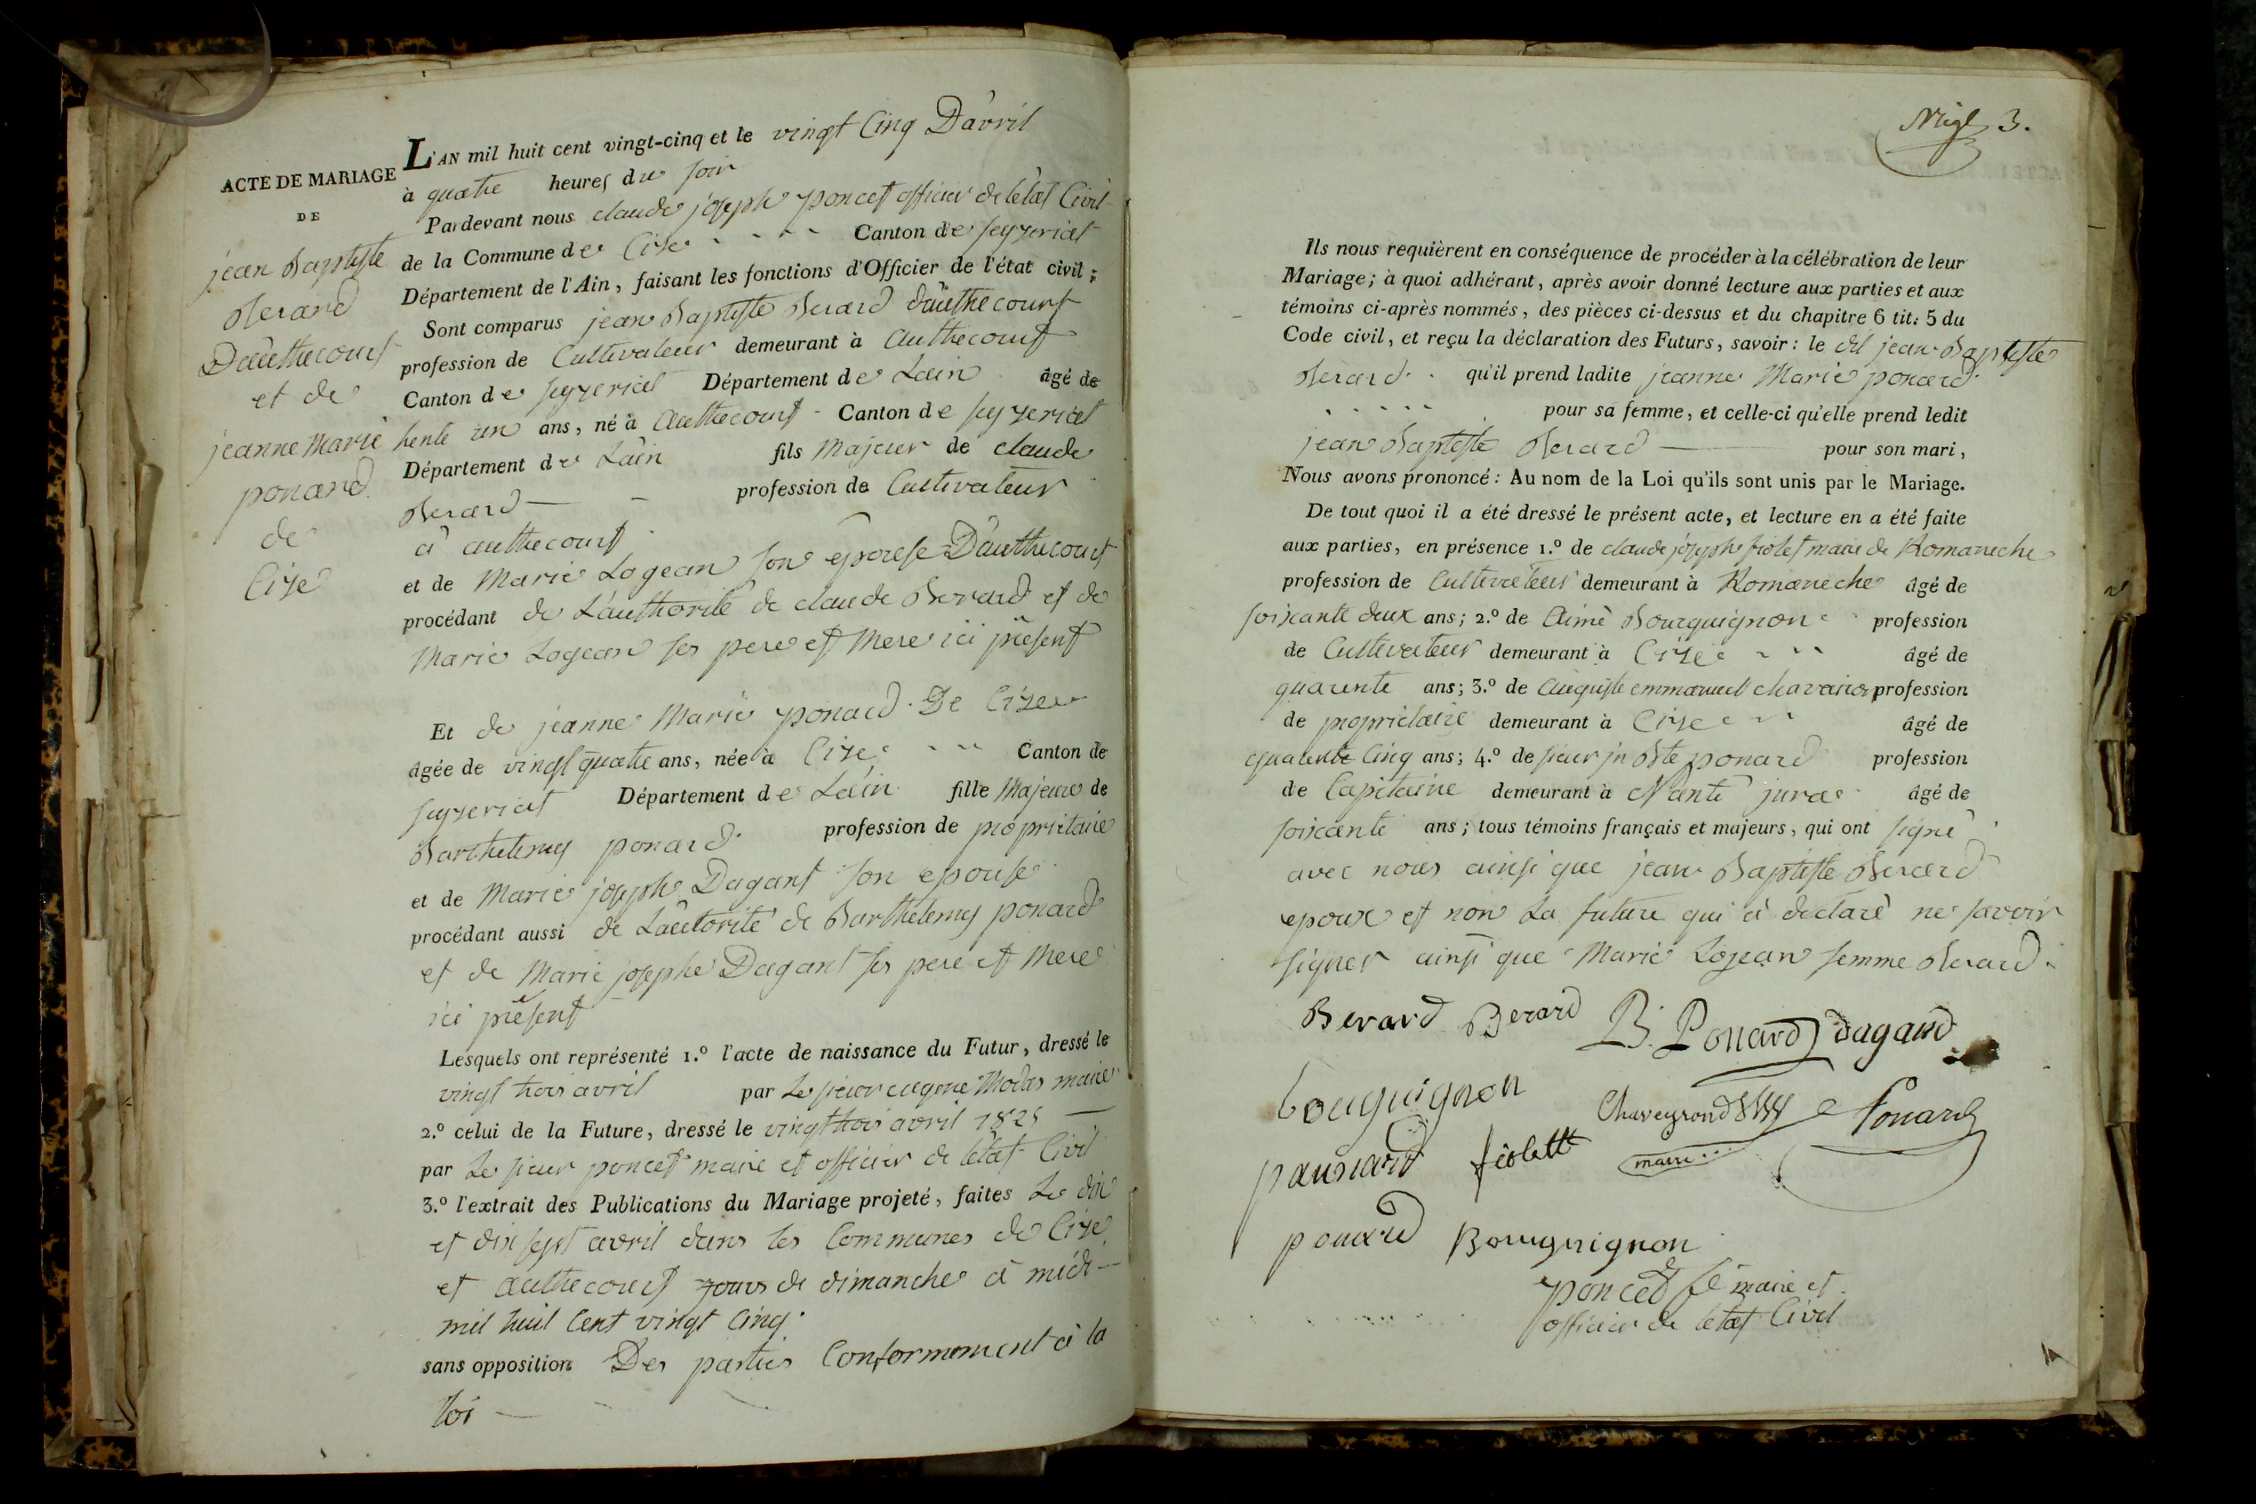 ACTE DE MARIAGE
DE
jean Baptiste
Berard
Dauthecourt
et de
jeanne Marie
ponard
de
Cize
L'AN mil huit cent vingt-cinq et le vingt Cinq Davril
à quatre heures du soir
Pardevant nous claude joseph poncet officier de letat Civil
de la Commune de Cize Canton de seyzeriat
Département de l'Ain, faisant les fonctions d'Officier de l'état civil;
Sont comparus jean Baptiste Berard dauthecourt
profession de Cultivateur demeurant à authecourt
Canton de seyzeriat Département de Lain âgé de
trente un ans, né à authecourt Canton de seyzeriat
Département de Lain fils Majeur de claude
Berard profession de Cultivateur
a authecourt
et de Marie Logean son epouse Dauthecourt
procédant de Lauthorité de claude Berard et de
Marie Logean ses pere et Mere ici présent
Et de jeanne Marie ponard De Cize
âgée de vingt quatre ans, née à Cize Canton de
seyzeriat Département de Lain fille Majeure de
Barthelemy ponard profession de propriétaire
et de Marie joseph Dagant son epouse
procédant aussi de Lautorité de Barthelemy ponard
et de Marie josephe Dagant ses pere et Mere
ici présent
Lesquels ont représenté 1.º l'acte de naissance du Futur, dressé le
vingt trois avril par Le sieur eugene Modas maire
2.º celui de la Future, dressé le vingt trois avril 1825
par Le sieur poncet maire et officier de letat Civil
3.º l'extrait des Publications du Mariage projeté, faites Le dix
et dix sept avril dans les Communes de Cize
et authecourt jours de dimanche a midi
mil huit Cent vingt Cinq.
sans opposition Des parties Conformement a la
loi
3.
Ils nous requièrent en conséquence de procéder à la célébration de leur
Mariage; à quoi adhérant, après avoir donné lecture aux parties et aux
témoins ci-après nommés, des pièces ci-dessus et du chapitre 6 tit. 5 du
Code civil, et reçu la déclaration des Futurs, savoir: le dit jean Baptiste
Berard qu'il prend ladite jeanne Marie ponard
pour sa femme, et celle-ci qu'elle prend ledit
jean Baptiste Berard pour son mari,
Nous avons prononcé: Au nom de la Loi qu'ils sont unis par le Mariage.
De tout quoi il a été dressé le présent acte, et lecture en a été faite
aux parties, en présence 1.º de claude joseph fiolet maire de Romaneche
profession de Cultivateur demeurant à Romaneche âgé de
soixante deux ans; 2.º de Aimé Bourguignon profession
de Cultivateur demeurant à Cize âgé de
quarente ans; 3.º de auguste emmanuel profession
de propriétaire demeurant à Cize âgé de
quarente Cinq ans; 4.º de sieur jn Bte ponard profession
de Capitaine demeurant à Nanti jura âgé de
soixante ans; tous témoins français et majeurs, qui ont signé
avec nous ainsi que jean Baptiste Berard
epoux et non La future qui a declaré ne savoir
signer ainsi que Marie Logean femme Berard
Berard Berard B. Ponard dagand
bouguignon Chaveyrond Ponard
paunard fiolett maire
ponard Bourguignon
poncet maire et
officier de letat Civil